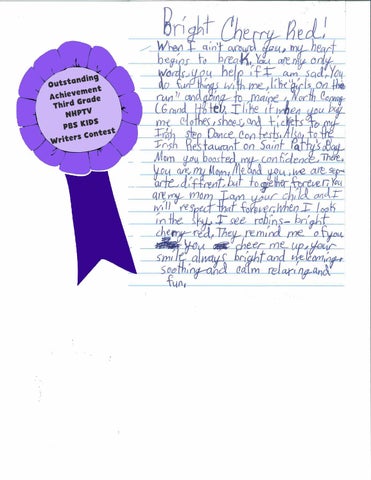 Outstanding
Achievement
Third Grade
NHPTV
PBS KIDS
Writers Contest
Bright Cherry Red!
When I ain't around you, my heart
begins to break. You are my only
words, you help if I am sad. You
do fun things with me, like "girls on the
run" and going to maine, North Conway
(Grand Hotel), I like it when you buy
me clothes, shoes, and tickets to my
Irish step Dance contests. Also, to the
Irish Restaurant on Saint Patty's Day
Mom you boosted my confidence. There,
you are my Mom, Me and you, we are sepr
arte diffrent, but together forever, You
are my mom I am your child and I
will respect that forever, when I look
in the sky, I see robins- bright
cherry red. They remind me of you
you cheer me up, your
smile always bright and welcoming.
soothing and calm relaxing and
fun.